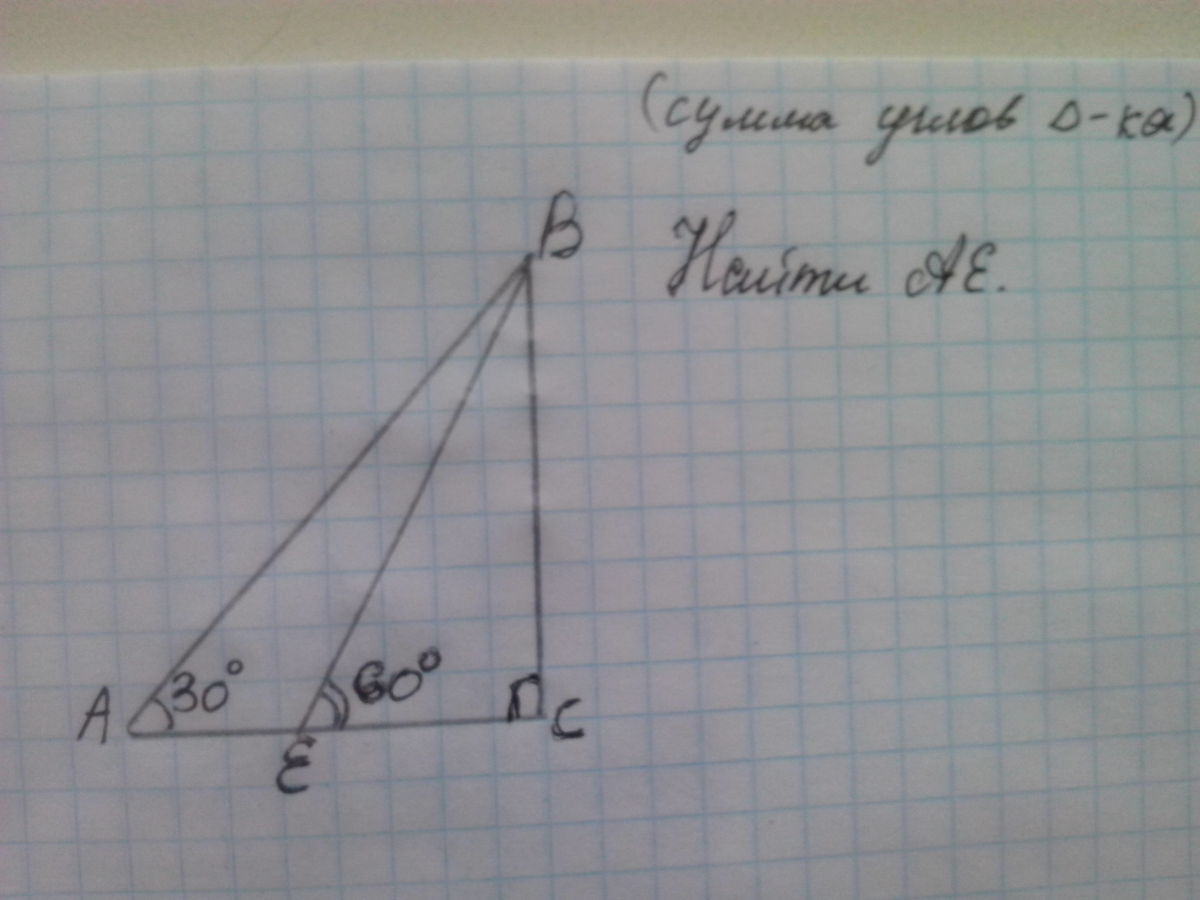 (сумма углов Δ-ка)
B
Найти AE.
A 30° 60° C
E